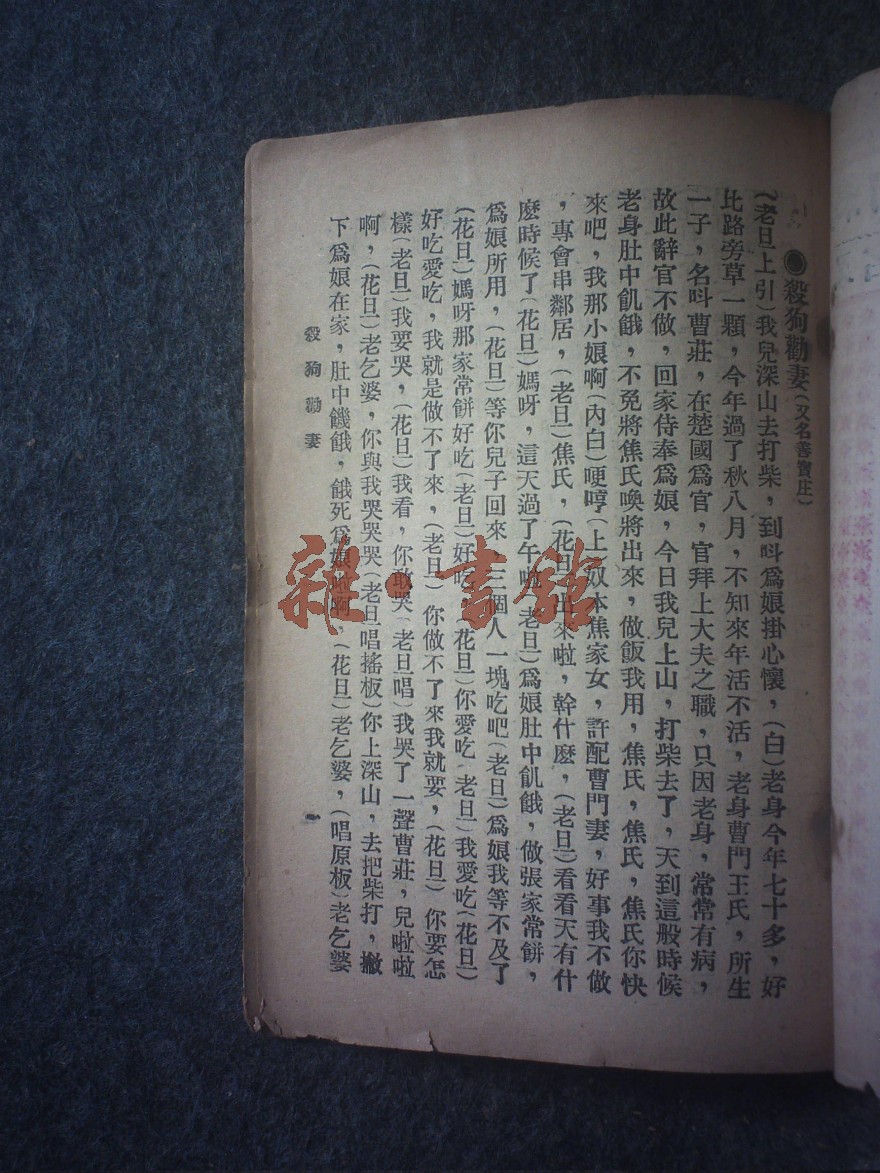 ●殺狗勸妻(又名善寶庄)
(老旦上引)我兒深山去打柴，到呌爲娘掛心懷，(白)老身今年七十多，好
比路旁草一顆，今年過了秋八月，不知來年活不活，老身曹門王氏，所生
一子，名呌曹莊，在楚國爲官，官拜上大夫之職，只因老身，常常有病，
故此辭官不做，回家侍奉爲娘，今日我兒上山，打柴去了，天到這般時候
老身肚中飢餓，不免將焦氏喚將出來，做飯我用，焦氏，焦氏，焦氏你快
來吧，我那小娘啊(內白)哽哼(上)奴本焦家女，許配曹門妻，好事我不做
，專會串鄰居，(老旦)焦氏，(花旦)出來啦，幹什麽，(老旦)看看天有什
麽時候了(花旦)媽呀，這天過了午啦(老旦)爲娘肚中飢餓，做張家常餅，
爲娘所用，(花旦)等你兒子回來，三個人一塊吃吧(老旦)爲娘我等不及了
(花旦)媽呀那家常餅好吃(老旦)好吃(花旦)你愛吃(老旦)我愛吃(花旦)
好吃愛吃，我就是做不了來，(老旦)你做不了來我就要，(花旦)你要怎
樣(老旦)我要哭，(花旦)我看，你敢哭(老旦唱)我哭了一聲曹莊，兒啦啦
啊，(花旦)老乞婆，你與我哭哭哭(老旦唱搖板)你上深山，去把柴打，撇
下爲娘在家，肚中饑餓，餓死爲娘啦啊，(花旦)老乞婆，(唱原板)老乞婆
殺狗勸妻
雜·書館